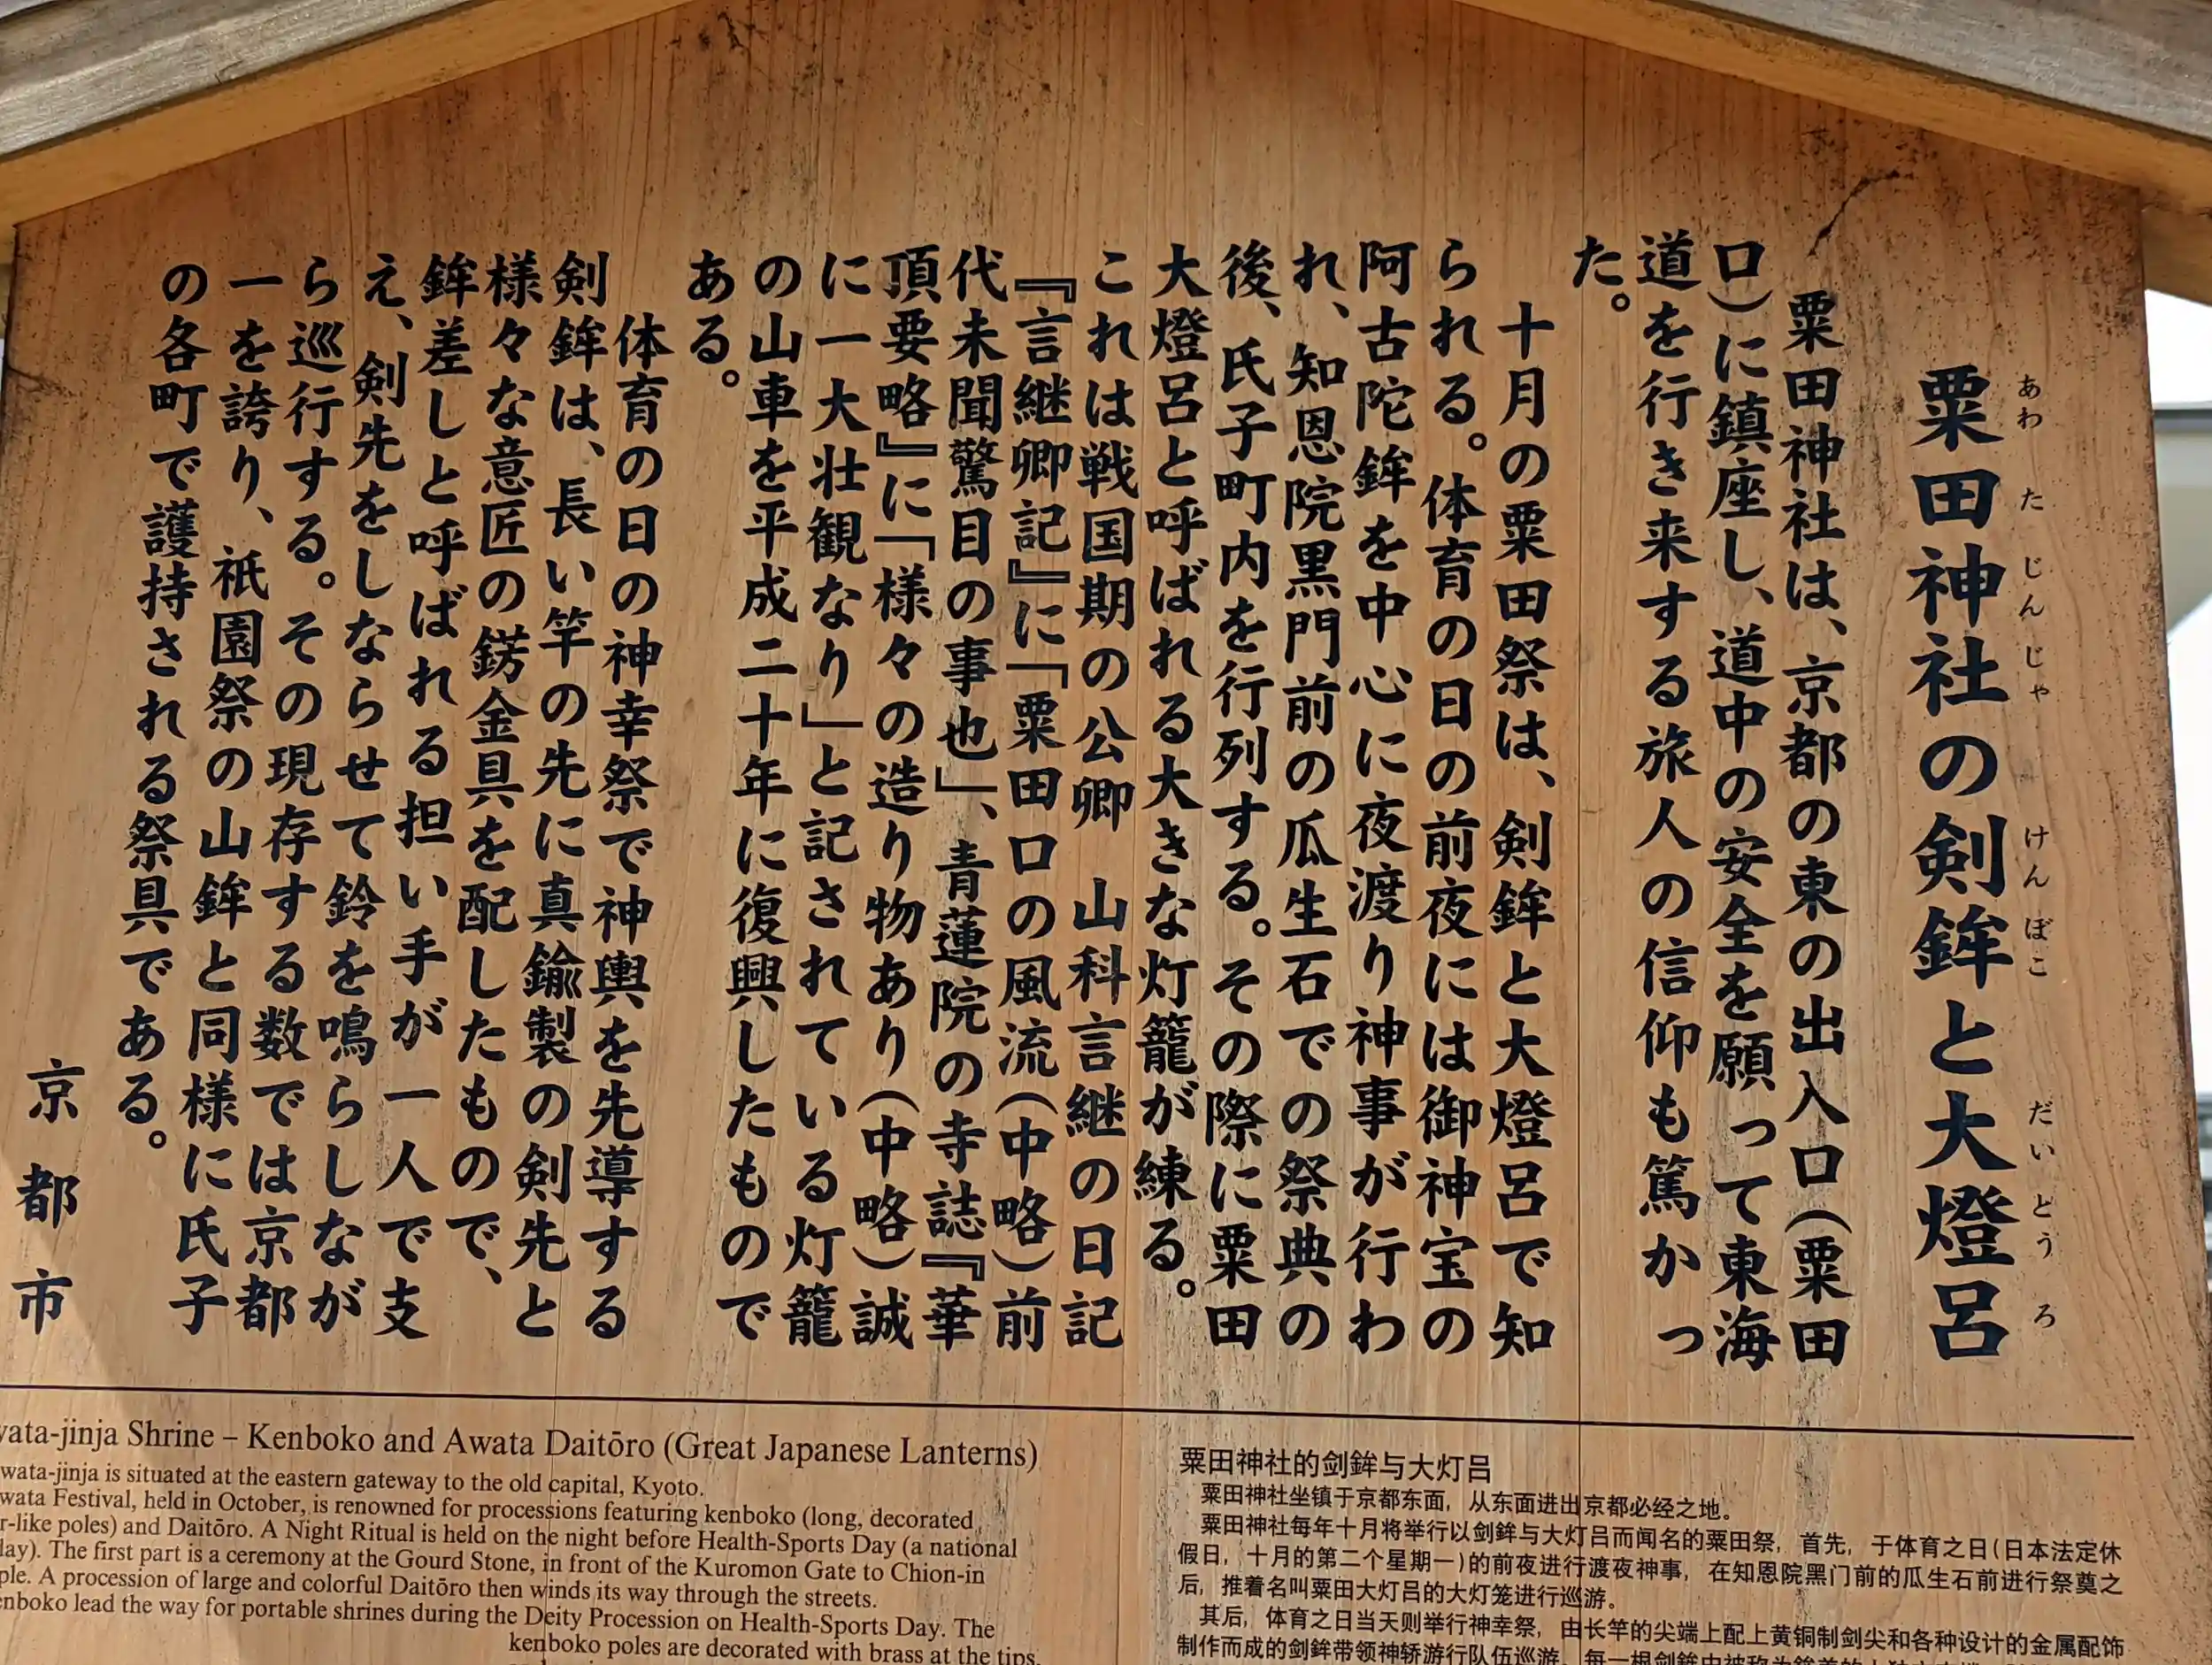 粟田神社の剣鉾と大燈呂
あわ た じんじゃ けんぼこ だいとうろ
粟田神社は、京都の東の出入口(粟田
口)に鎮座し、道中の安全を願って東海
道を行き来する旅人の信仰も篤かっ
た。
十月の粟田祭は、剣鉾と大燈呂で知
られる。体育の日の前夜には御神宝の
阿古陀鉾を中心に夜渡り神事が行わ
れ、知恩院黒門前の瓜生石での祭典の
後、氏子町内を行列する。その際に粟田
大燈呂と呼ばれる大きな灯籠が練る。
これは戦国期の公卿 山科言継の日記
『言継卿記』に「粟田口の風流(中略)前
代未聞驚目の事也」、青蓮院の寺誌『華
頂要略』に「様々の造り物あり(中略)誠
に一大壮観なり」と記されている灯籠
の山車を平成二十年に復興したもので
ある。
体育の日の神幸祭で神輿を先導する
剣鉾は、長い竿の先に真鍮製の剣先と
様々な意匠の錺金具を配したもので、
鉾差しと呼ばれる担い手が一人で支
え、剣先をしならせて鈴を鳴らしなが
ら巡行する。その現存する数では京都
一を誇り、祇園祭の山鉾と同様に氏子
の各町で護持される祭具である。
京都市
wata-jinja Shrine – Kenboko and Awata Daitōro (Great Japanese Lanterns)
wata-jinja is situated at the eastern gateway to the old capital, Kyoto.
wata Festival, held in October, is renowned for processions featuring kenboko (long, decorated
r-like poles) and Daitōro. A Night Ritual is held on the night before Health-Sports Day (a national
lay). The first part is a ceremony at the Gourd Stone, in front of the Kuromon Gate to Chion-in
ple. A procession of large and colorful Daitōro then winds its way through the streets.
enboko lead the way for portable shrines during the Deity Procession on Health-Sports Day. The
kenboko poles are decorated with brass at the tips,
粟田神社的剑鉾与大灯吕
粟田神社坐镇于京都东面，从东面进出京都必经之地。
粟田神社每年十月将举行以剑鉾与大灯吕而闻名的粟田祭，首先，于体育之日(日本法定休
假日，十月的第二个星期一)的前夜进行渡夜神事，在知恩院黑门前的瓜生石前进行祭奠之
后，推着名叫粟田大灯吕的大灯笼进行巡游。
其后，体育之日当天则举行神幸祭，由长竿的尖端上配上黄铜制剑尖和各种设计的金属配饰
制作而成的剑鉾带领神轿游行队伍巡游。